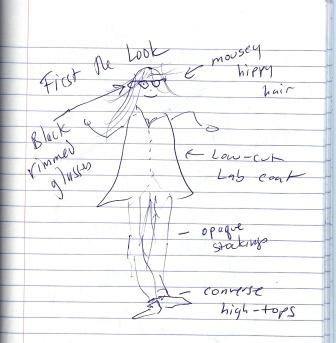 First the Look
mousey
hippy
hair
Black
rimmed
glasses
Low-cut
Lab coat
opaque
stockings
converse
high-tops